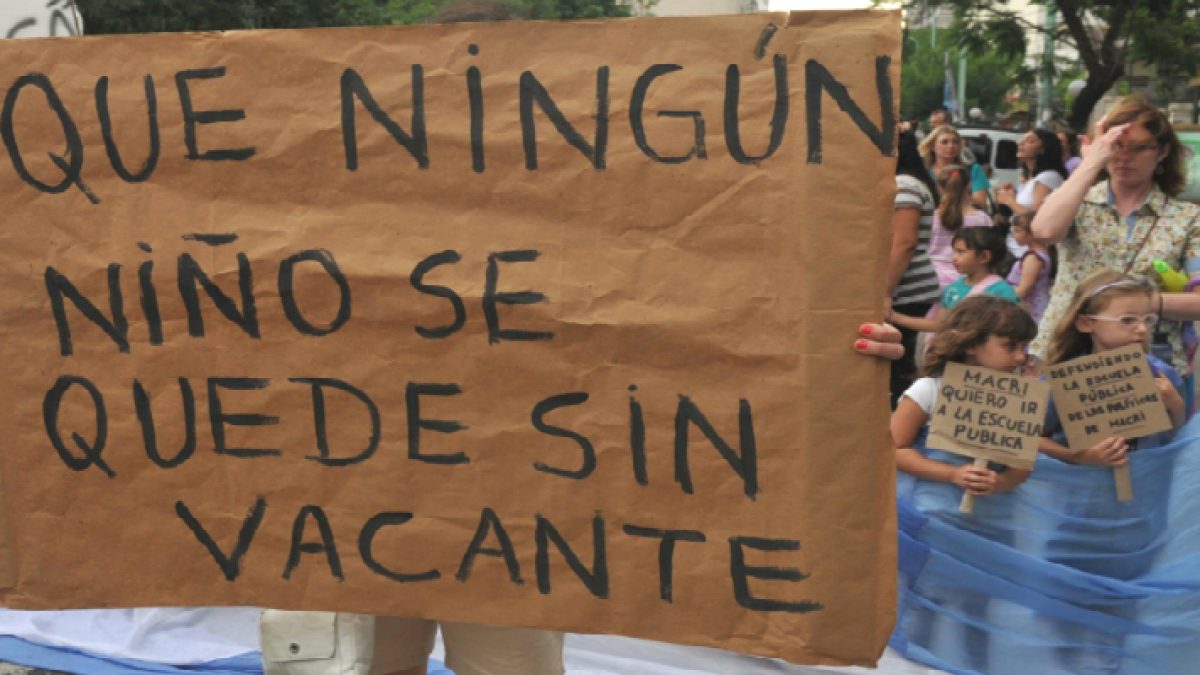 QUE NINGÚN
NIÑO SE
QUEDE SIN
VACANTE
MACRI
QUIERO IR
A LA ESCUELA
PUBLICA
DEFENDIENDO
LA ESCUELA
PÚBLICA
DE LAS POLÍTICAS
DE MACRI